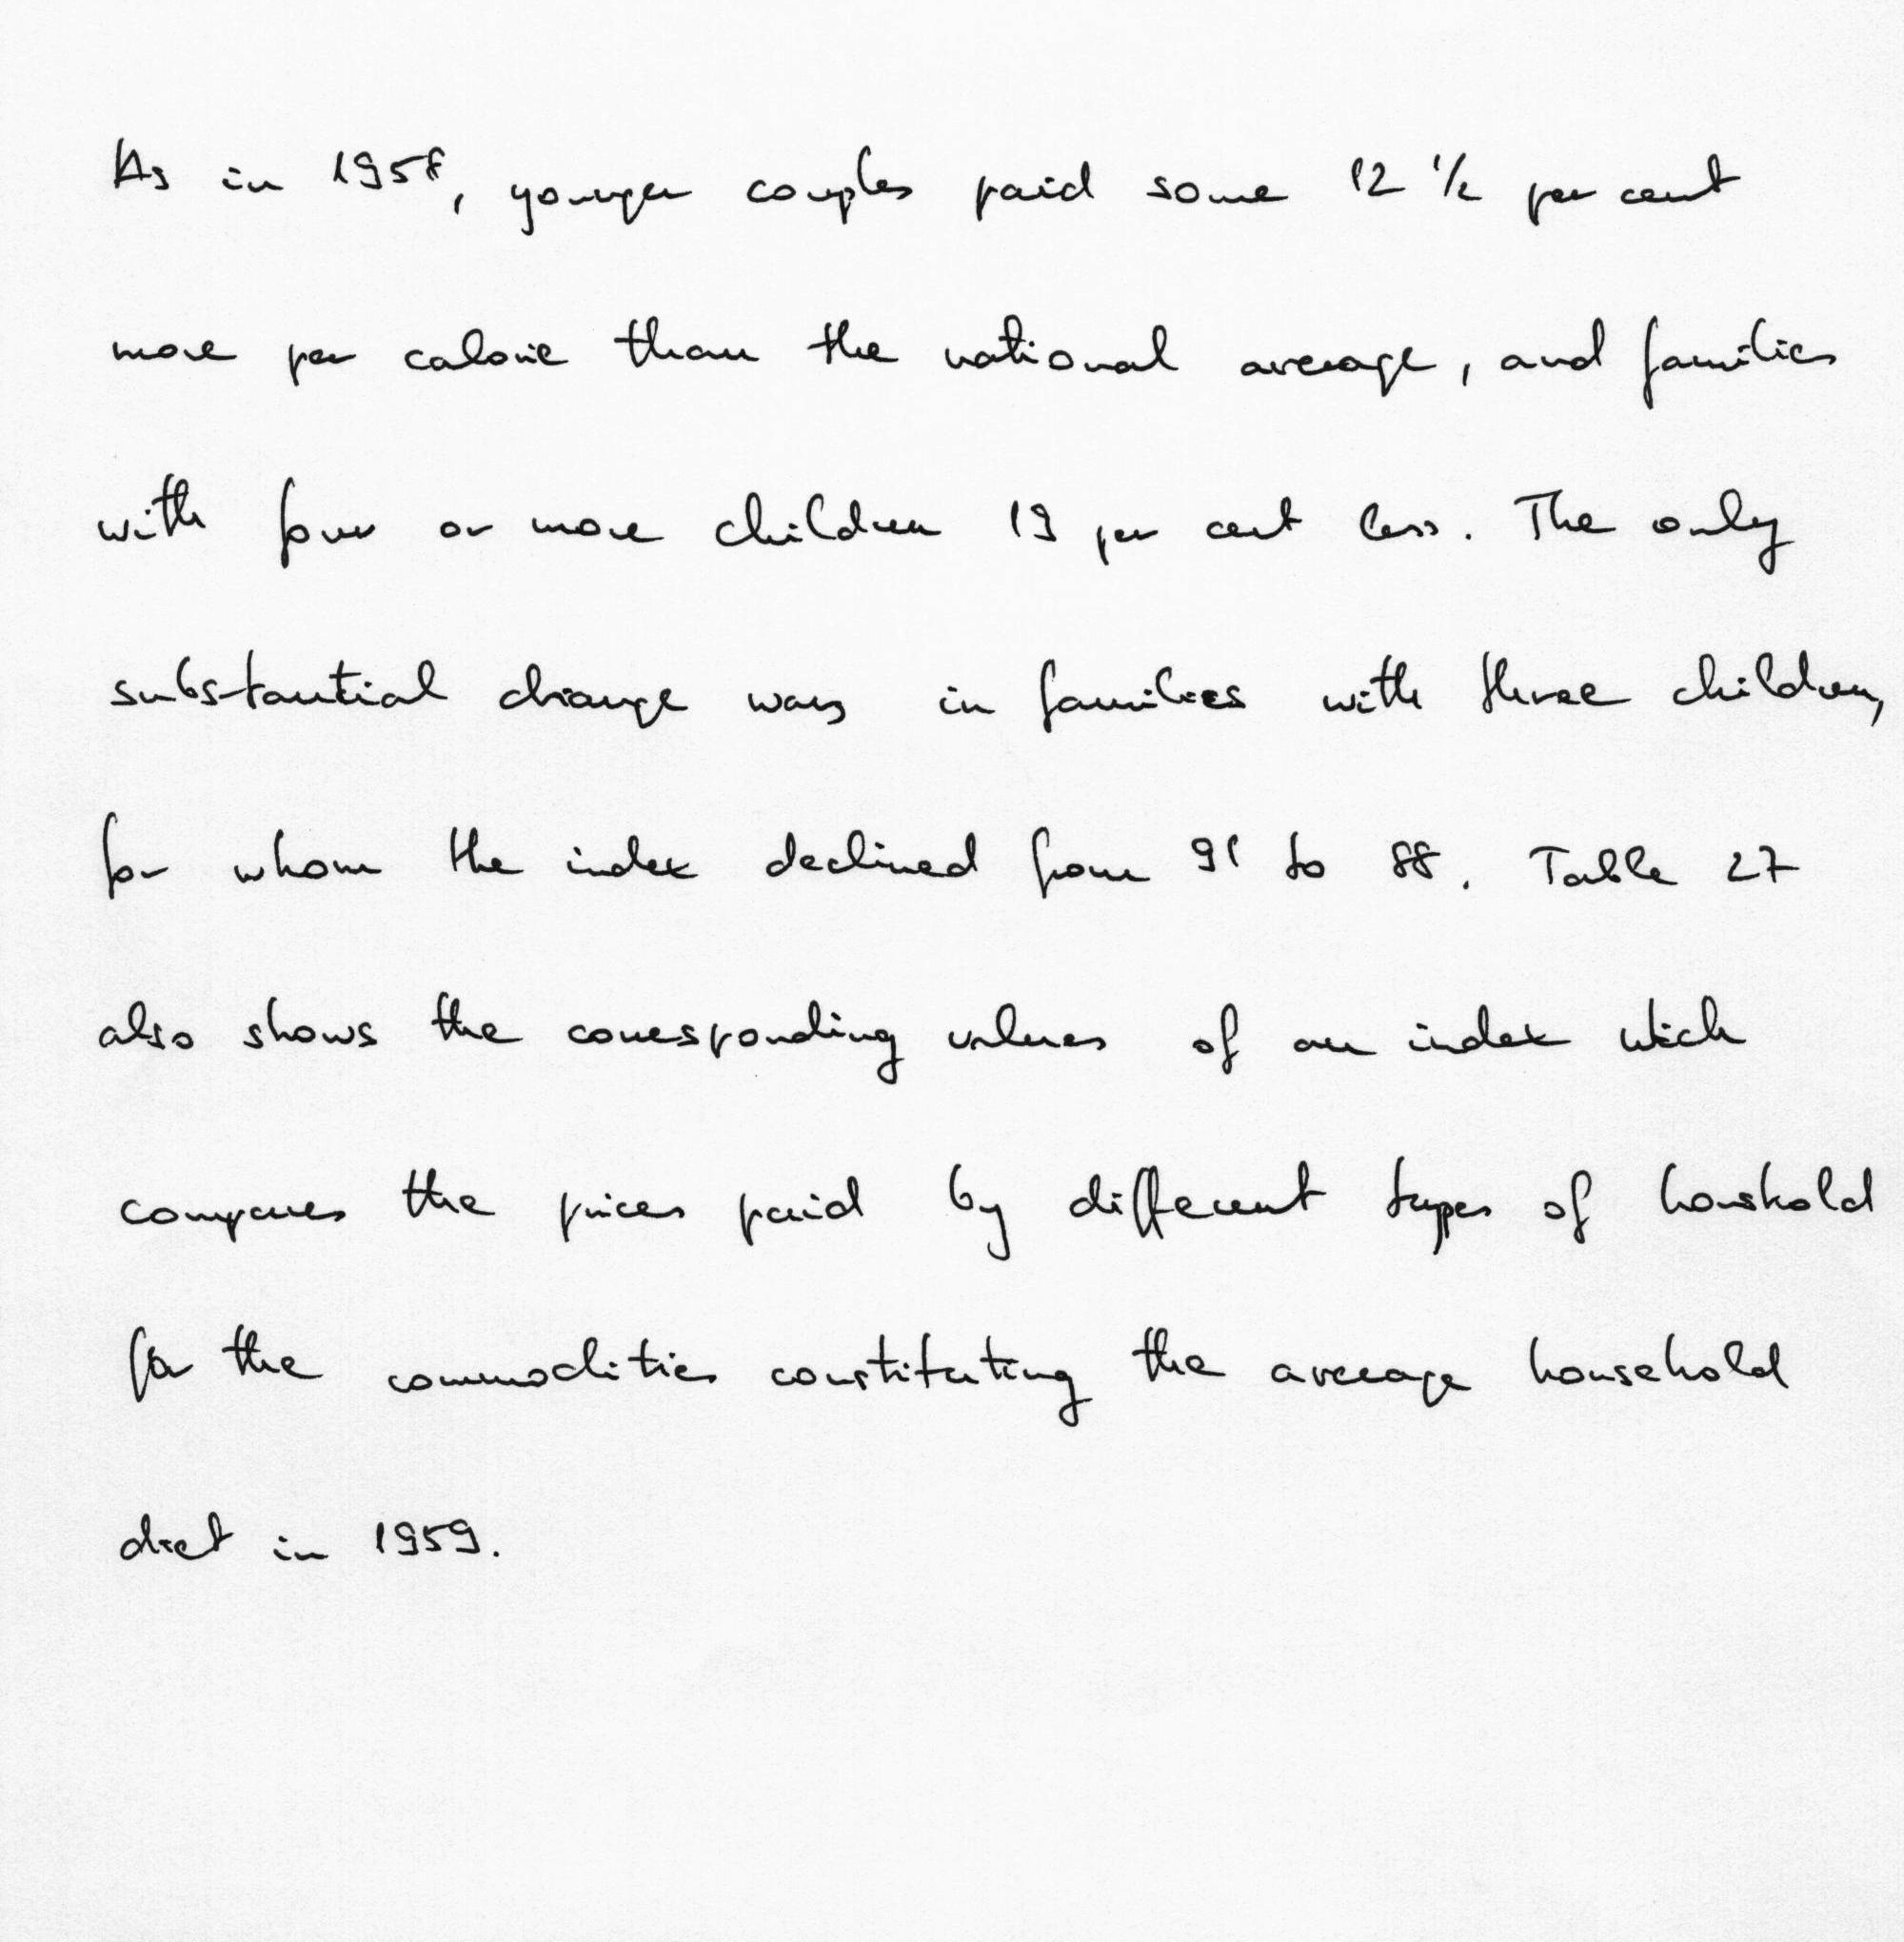 As in 1958, younger couples paid some 12 1/2 per cent
more per calorie than the national average, and families
with four or more children 19 per cent less. The only
substantial change was in families with three children,
for whom the index declined from 91 to 88. Table 27
also shows the corresponding values of an index which
compares the prices paid by different types of houshold
for the commodities constituting the average household
diet in 1959.